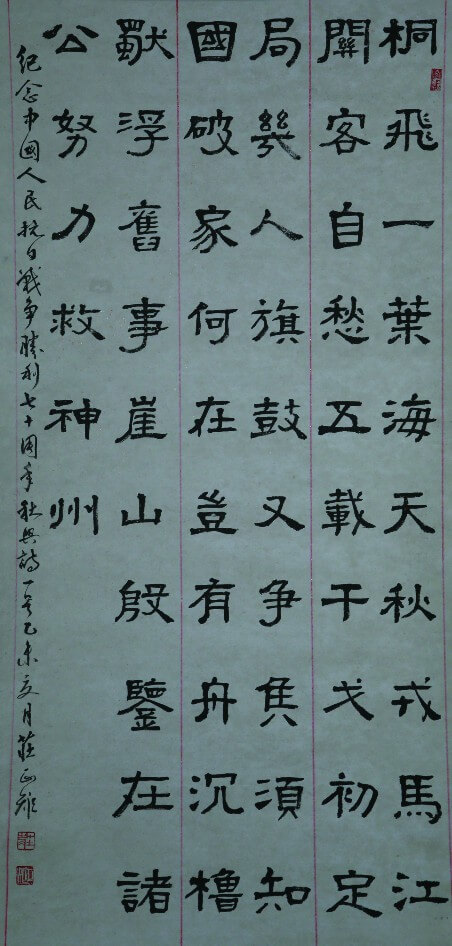 桐飛一葉海天秋戎馬江
關客自愁五載干戈初定
局幾人旗鼓又爭矦須知
國破家何在豈有舟沉櫓
獨浮舊事崖山殷鑒在諸
公努力救神州
紀念中國人民抗日戰爭勝利七十周年秋興詩一首乙未夏月莊正雄